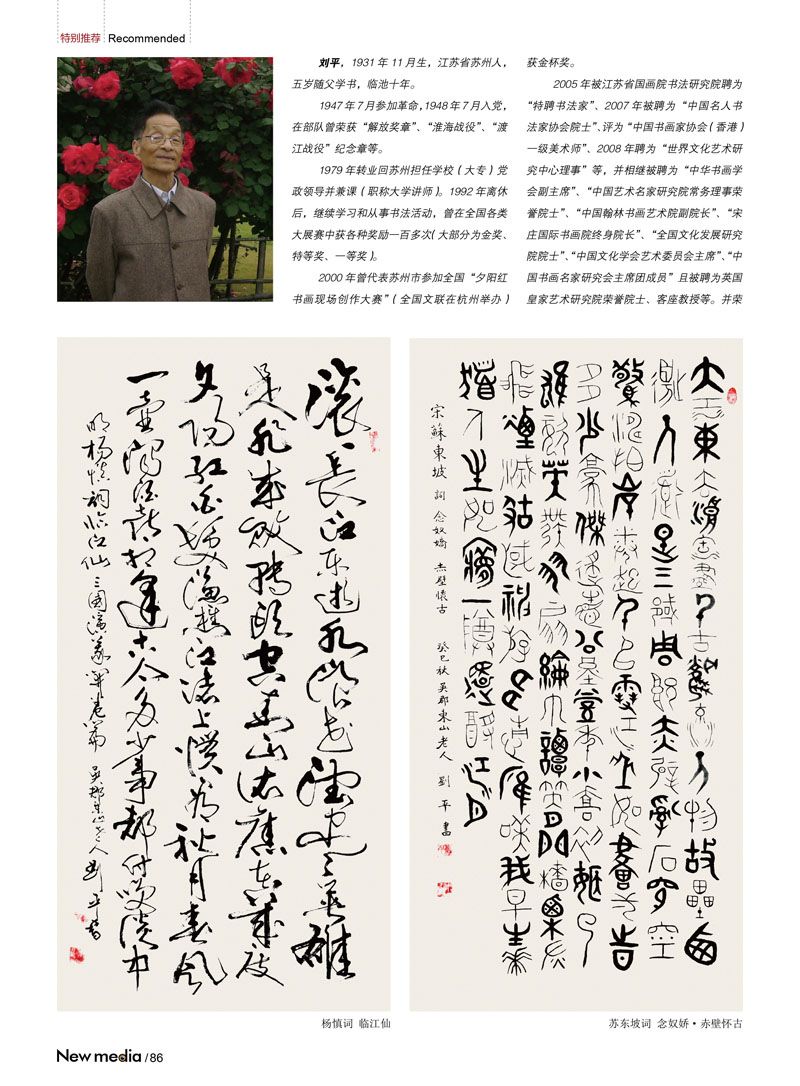 特别推荐 Recommended
刘平，1931 年 11 月生，江苏省苏州人，
五岁随父学书，临池十年。
1947 年 7 月参加革命，1948 年 7 月入党，
在部队曾荣获“解放奖章”、“淮海战役”、“渡
江战役”纪念章等。
1979 年转业回苏州担任学校（大专）党
政领导并兼课（职称大学讲师）。1992 年离休
后，继续学习和从事书法活动，曾在全国各类
大展赛中获各种奖励一百多次（大部分为金奖、
特等奖、一等奖）。
2000 年曾代表苏州市参加全国“夕阳红
书画现场创作大赛”（全国文联在杭州举办）
获金杯奖。
2005 年被江苏省国画院书法研究院聘为
“特聘书法家”、2007 年被聘为“中国名人书
法家协会院士”、评为“中国书画家协会（香港）
一级美术师”、2008 年聘为“世界文化艺术研
究中心理事”等，并相继被聘为“中华书画学
会副主席”、“中国艺术名家研究院常务理事荣
誉院士”、“中国翰林书画艺术院副院长”、“宋
庄国际书画院终身院长”、“全国文化发展研究
院院士”、“中国文化学会艺术委员会主席”、“中
国书画名家研究会主席团成员”且被聘为英国
皇家艺术研究院荣誉院士、客座教授等。并荣
滚滚长江东逝水浪花淘尽英雄
是非成败转头空青山依旧在几度
夕阳红白发渔樵江渚上惯看秋月春风
一壶浊酒喜相逢古今多少事都付笑谈中
明杨慎词临江仙三國演義開卷篇 吴郡東山老人劉平書
大江東去浪淘盡千古風流人物故壘西
邊人道是三國周郎赤壁亂石穿空
驚濤拍岸捲起千堆雪江山如畫一時
多少豪傑遙想公瑾當年小喬初嫁了
雄姿英發羽扇綸巾談笑間檣櫓灰
飛煙滅故國神遊多情應笑我早生華
髮人生如夢一尊還酹江月
宋蘇東坡詞 念奴嬌 赤壁懷古 癸巳秋吴郡東山老人 劉平書
杨慎词 临江仙
苏东坡词 念奴娇·赤壁怀古
New media /86